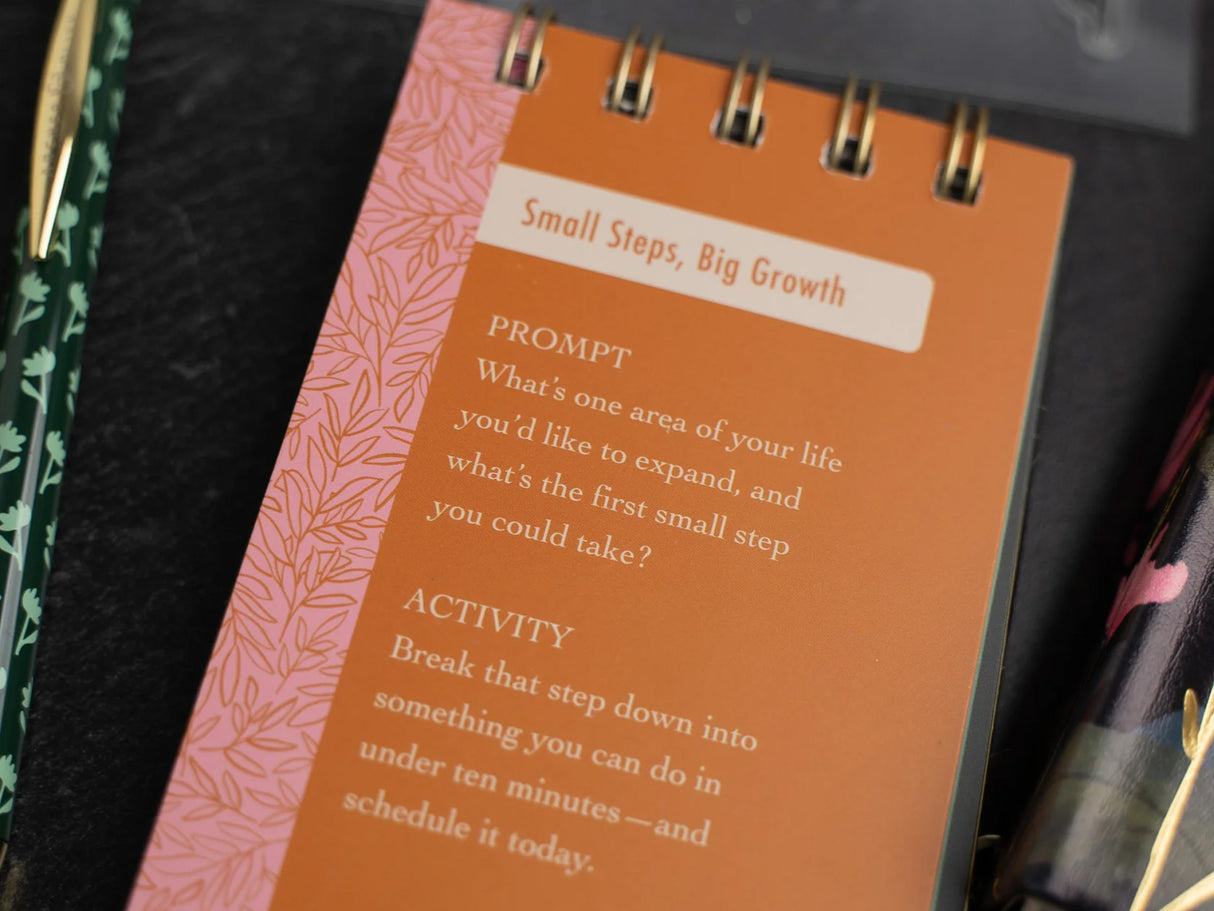 Small Steps, Big Growth
PROMPT
What's one area of your life
you'd like to expand, and
what's the first small step
you could take?
ACTIVITY
Break that step down into
something you can do in
under ten minutes—and
schedule it today.